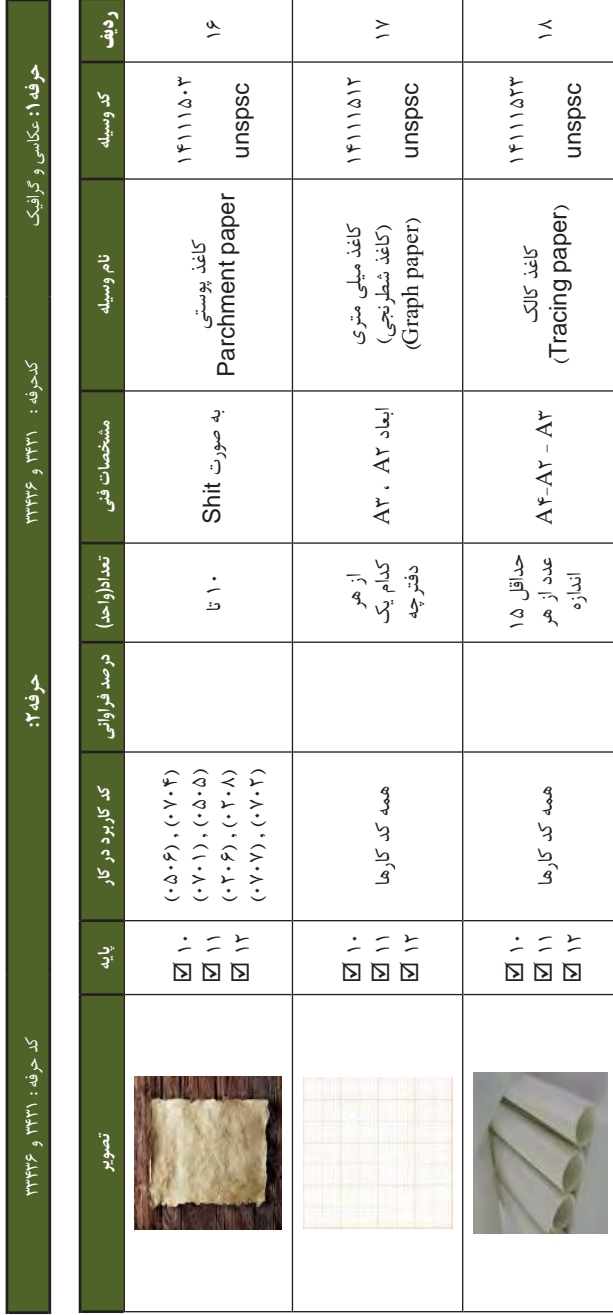 حرفه ۱: عکاسی و گرافیک کدحرفه : ۳۴۳۱ و ۳۳۴۳۶ حرفه ۲: کد حرفه : ۳۴۳۱ و ۳۳۴۳۶
ردیف کد وسیله نام وسیله مشخصات فنی تعداد(واحد) درصد فراوانی کد کاربرد در کار پایه تصویر
۱۶
۱۴۱۱۱۵۰۳
unspsc
کاغذ پوستی
Parchment paper
به صورت Shit
۱۰ تا
(۰۵۰۶) , (۰۷۰۴)
(۰۷۰۱) , (۰۵۰۵)
(۰۲۰۶) , (۰۲۰۸)
(۰۷۰۷) , (۰۷۰۲)
☑ ۱۰
☑ ۱۱
☑ ۱۲
۱۷
۱۴۱۱۱۵۱۲
unspsc
کاغذ میلی متری
(کاغذ شطرنجی)
(Graph paper)
ابعاد A۳ ، A۲
از هر
کدام یک
دفترچه
همه کد کارها
☑ ۱۰
☑ ۱۱
☑ ۱۲
۱۸
۱۴۱۱۱۵۲۳
unspsc
کاغذ کالک
(Tracing paper)
A۴-A۲ - A۳
حداقل ۱۵
عدد از هر
اندازه
همه کد کارها
☑ ۱۰
☑ ۱۱
☑ ۱۲